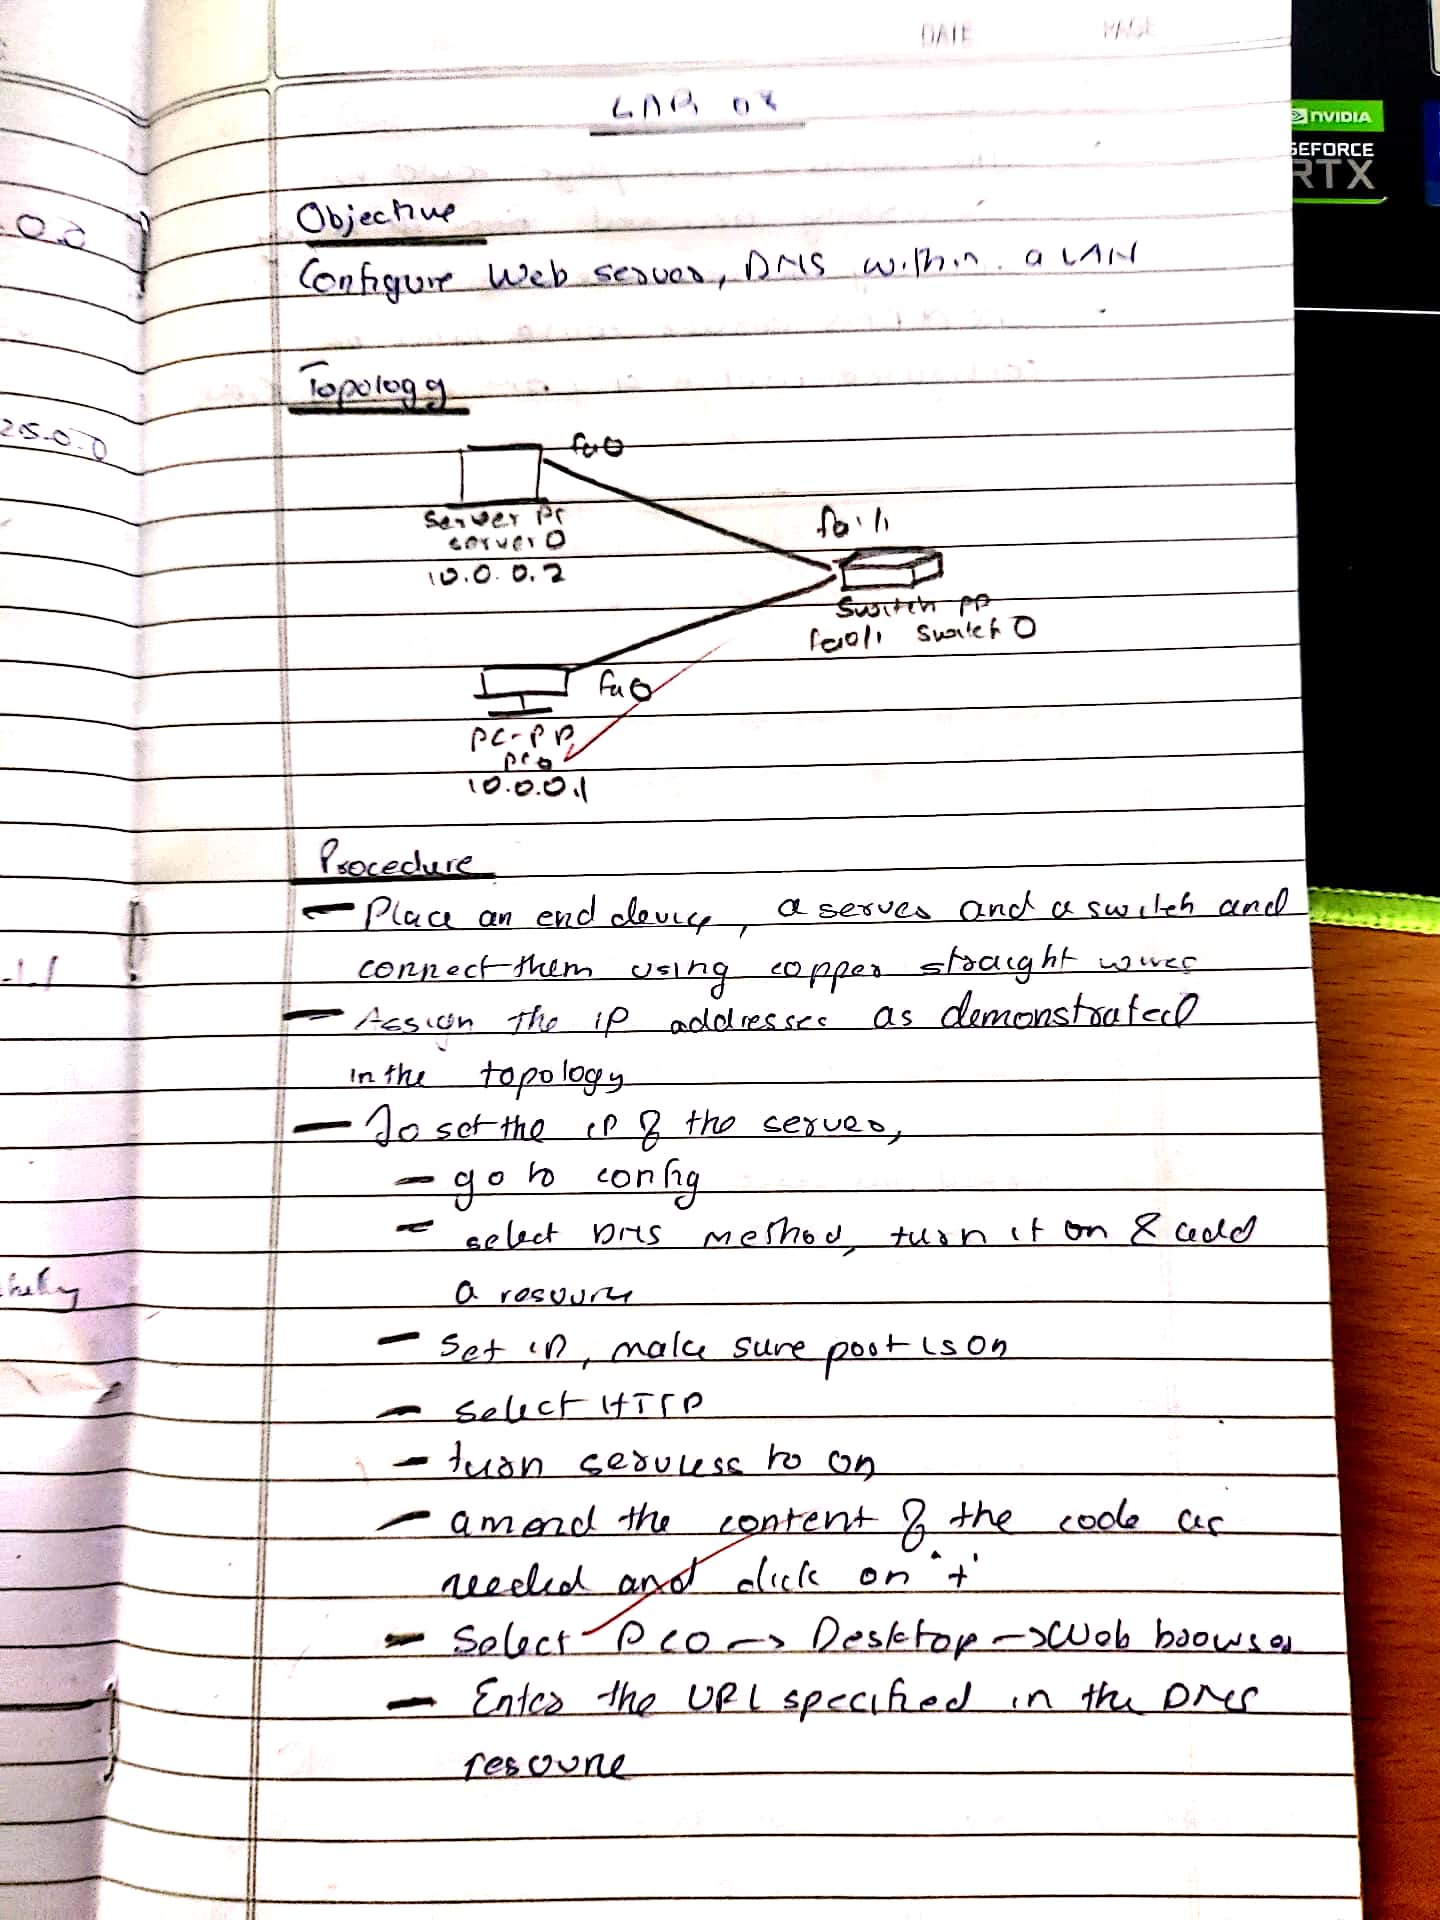 DATE PAGE
LAB 08
NVIDIA
GEFORCE
RTX
0.0
Objective
Configure Web server, DNS within a LAN
Topology
255.0.0
fa0
Server PT
server 0
10.0.0.2
fa1/1
Switch PT
fa0/1 Switch 0
fa0
PC-PT
PC0
10.0.0.1
Procedure
- Place an end device, a server and a switch and
connect them using copper straight wires
- Assign the IP addresses as demonstrated
in the topology
- To set the IP of the server,
- go to config
- select DNS method, turn it on & add
a resource
- Set IP, make sure port is on
- select HTTP
- turn services to on
- amend the content of the code as
needed and click on '+'
- Select PC0 -> Desktop -> Web browser
- Enter the URL specified in the DNS
resource